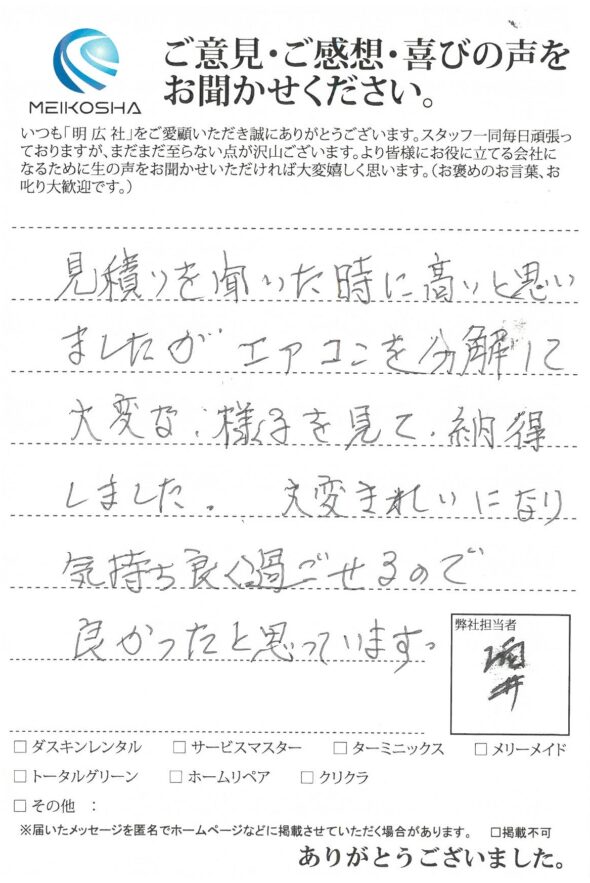 MEIKOSHA
ご意見・ご感想・喜びの声を
お聞かせください。
いつも「明広社」をご愛顧いただき誠にありがとうございます。スタッフ一同毎日頑張っ
ておりますが、まだまだ至らない点が沢山ございます。より皆様にお役に立てる会社に
なるために生の声をお聞かせいただければ大変嬉しく思います。（お褒めのお言葉、お
叱り大歓迎です。）
見積りを聞いた時に高いと思い
ましたがエアコンを分解して
大変な様子を見て、納得
しました。大変きれいになり
気持ち良く過ごせるので
良かったと思っています。
弊社担当者
□ ダスキンレンタル □ サービスマスター □ ターミニックス □ メリーメイド
□ トータルグリーン □ ホームリペア □ クリクラ
□ その他 ：
※届いたメッセージを匿名でホームページなどに掲載させていただく場合があります。 □掲載不可
ありがとうございました。